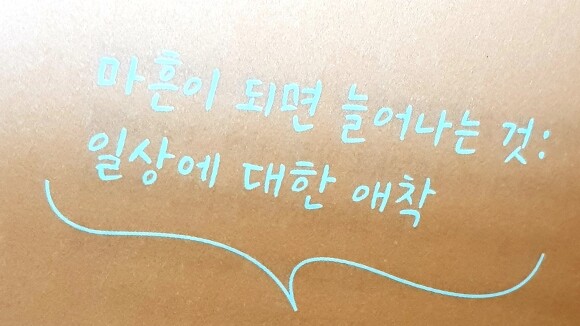 마흔이 되면 늘어나는 것:
일상에 대한 애착